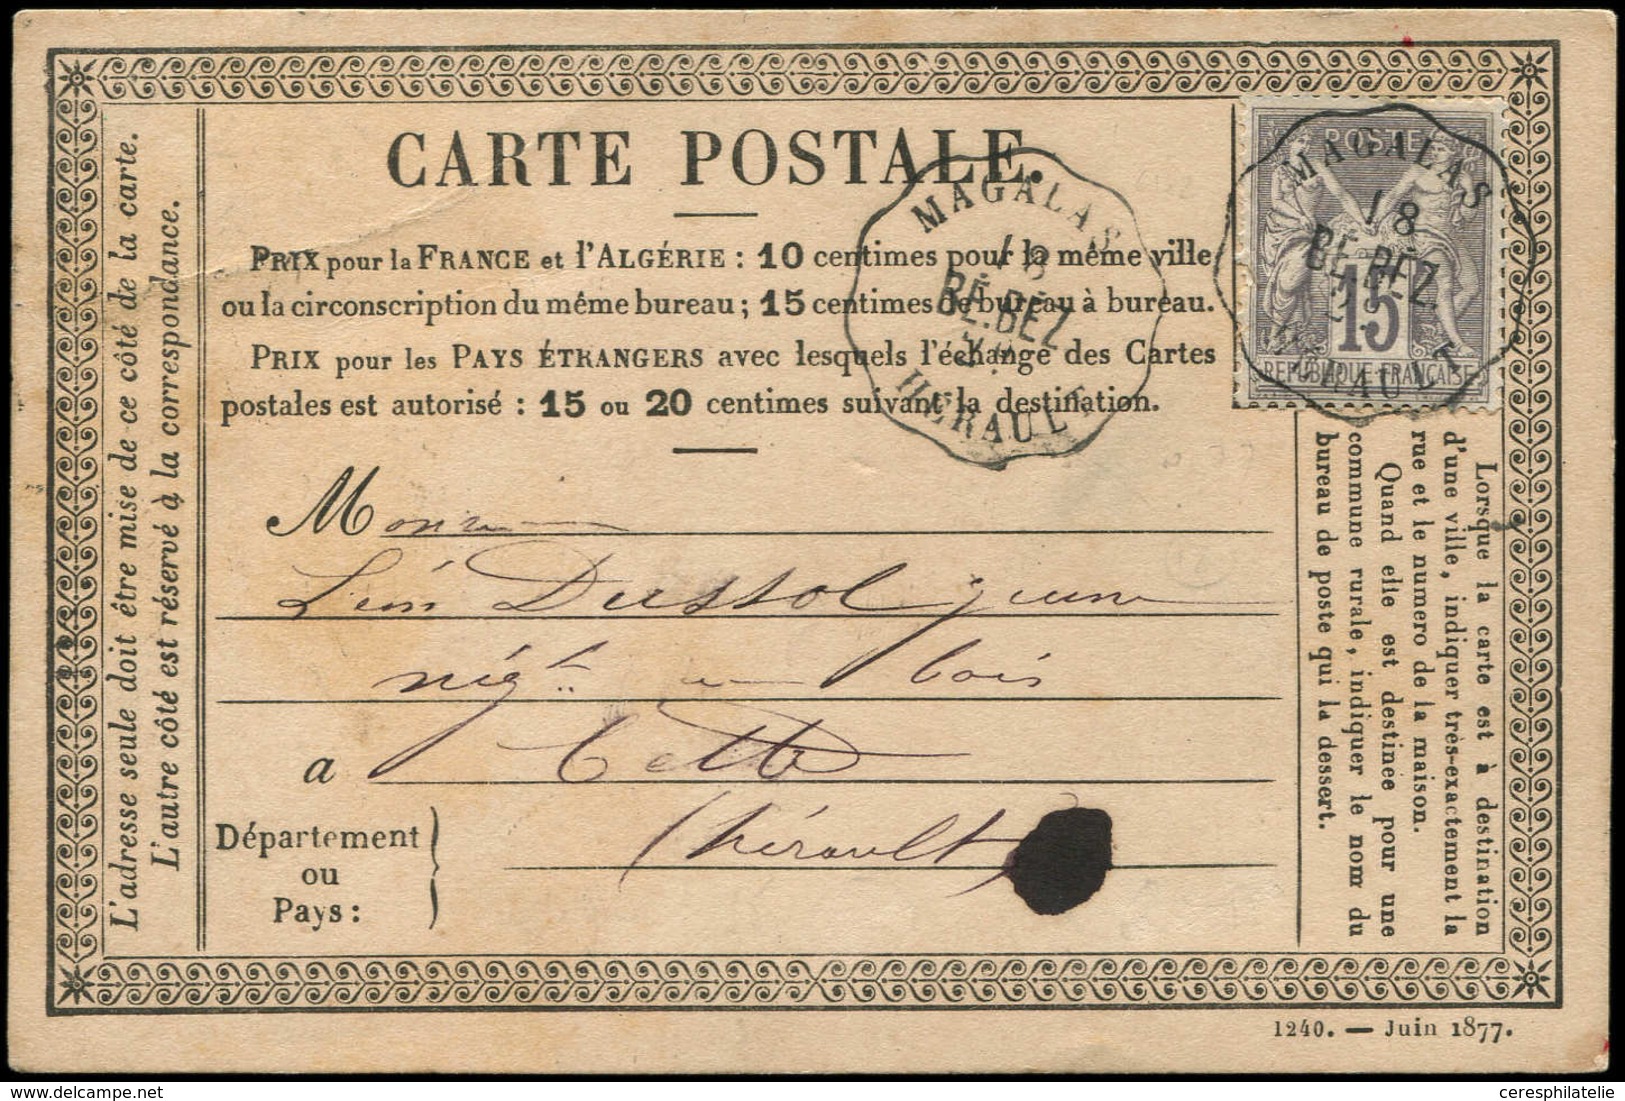 CARTE POSTALE.
PRIX pour la FRANCE et l'ALGÉRIE : 10 centimes pour la même ville
ou la circonscription du même bureau ; 15 centimes de bureau à bureau.
PRIX pour les PAYS ÉTRANGERS avec lesquels l'échange des Cartes
postales est autorisé : 15 ou 20 centimes suivant la destination.
L'adresse seule doit être mise de ce côté de la carte.
L'autre côté est réservé à la correspondance.
MAGALAS
18
BE.BEZ
HERAULT
POSTE
15
REPUBLIQUE FRANÇAISE
MAGALAS
18
BE.BEZ.
HERAULT
M
Léon Dussol jeune
nég.t en bois
a Cette
Département
ou
Pays :
(hérault)
Lorsque la carte est à destination
d'une ville, indiquer très-exactement la
rue et le numero de la maison.
Quand elle est destinée pour une
commune rurale, indiquer le nom du
bureau de poste qui la dessert.
1240. — Juin 1877.
© delcampe.net
ceresphilatelie